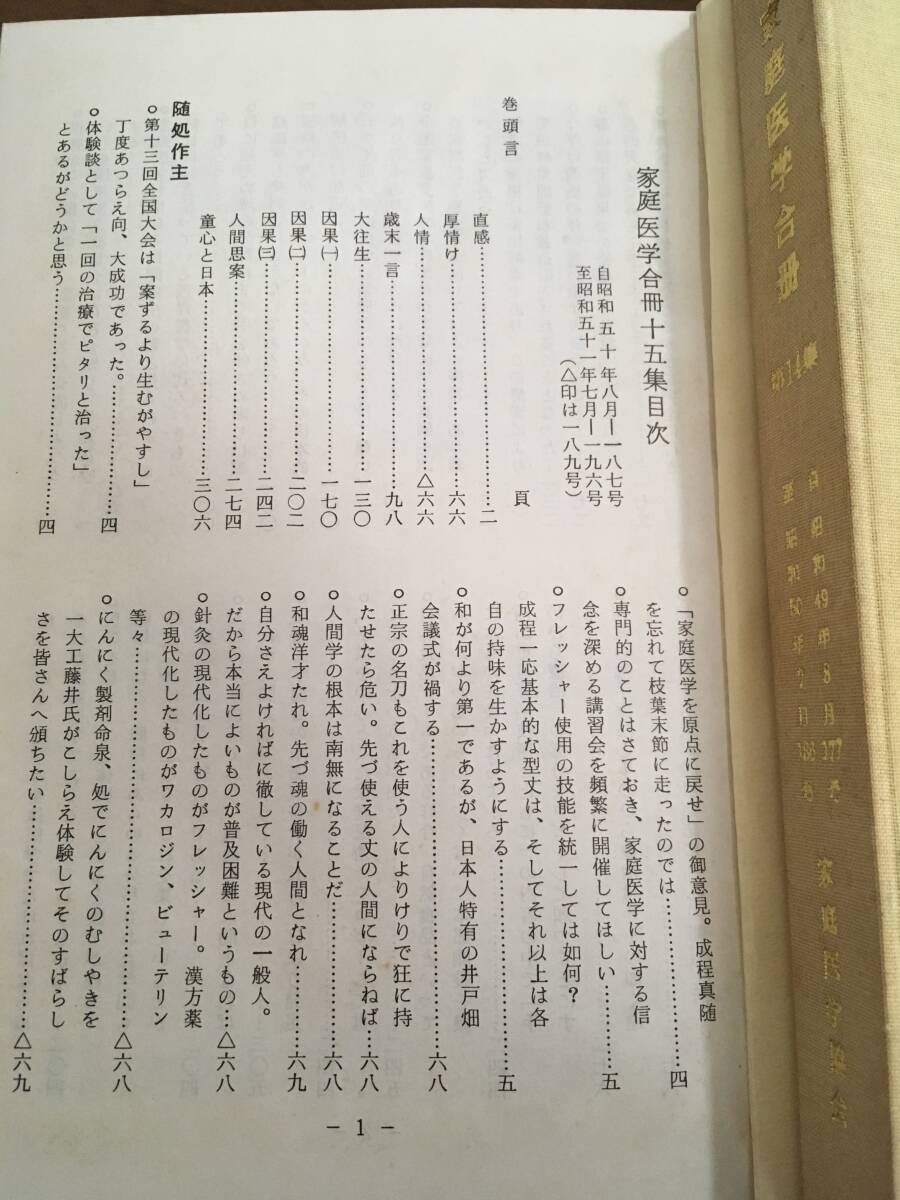 家庭医学合冊十五集目次
自昭和五十年八月―一八七号
至昭和五十一年七月―一九六号
(△印は一八九号)
頁
巻頭言
直感……二
厚情け……六六
人情……△六六
歳末一言……九八
大往生……一三〇
因果㈠……一七〇
因果㈡……二〇二
因果㈢……二四二
人間思案……二七四
童心と日本……三〇六
随処作主
○第十三回全国大会は「案ずるより生むがやすし」
丁度あつらえ向、大成功であった。……四
○体験談として「一回の治療でピタリと治った」
とあるがどうかと思う……四
○「家庭医学を原点に戻せ」の御意見。成程真随
を忘れて枝葉末節に走ったのでは……四
○専門的のことはさておき、家庭医学に対する信
念を深める講習会を頻繁に開催してほしい……五
○フレッシャー使用の技能を統一しては如何?
成程一応基本的な型丈は、そしてそれ以上は各
自の持味を生かすようにする……五
○和が何より第一であるが、日本人特有の井戸畑
会議式が禍する……六八
○正宗の名刀もこれを使う人によりけりで狂に持
たせたら危い。先づ使える丈の人間にならねば……六八
○人間学の根本は南無になることだ……六八
○和魂洋才たれ。先づ魂の働く人間となれ……六九
○自分さえよければに徹している現代の一般人。
だから本当によいものが普及困難というもの……△六八
○針灸の現代化したものがフレッシャー。漢方薬
の現代化したものがワカロジン、ビューテリン
等々……△六八
○にんにく製剤命泉、処でにんにくのむしやきを
一大工藤井氏がこしらえ体験してそのすばらし
さを皆さんへ頒ちたい……△六九
― 1 ―
家庭医学合冊
第14集
自昭和49年8月177号
至昭和50年 月186号
家庭医学集会